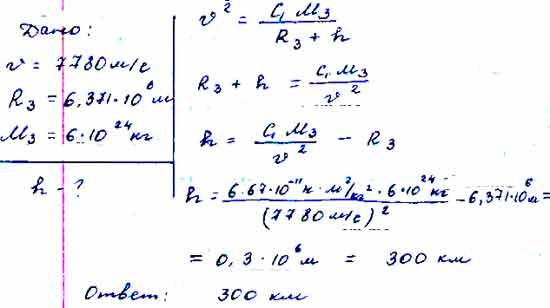 Дано:
v = 7780 м/с
R₃ = 6,371·10⁶ м
M₃ = 6·10²⁴ кг
h - ?
v² = G M₃ / (R₃ + h)
R₃ + h = G M₃ / v²
h = G M₃ / v² - R₃
h = 6.67·10⁻¹¹ н·м²/кг² · 6·10²⁴ кг / (7780 м/с)² - 6,371·10⁶ м =
= 0,3·10⁶ м = 300 км
Ответ: 300 км